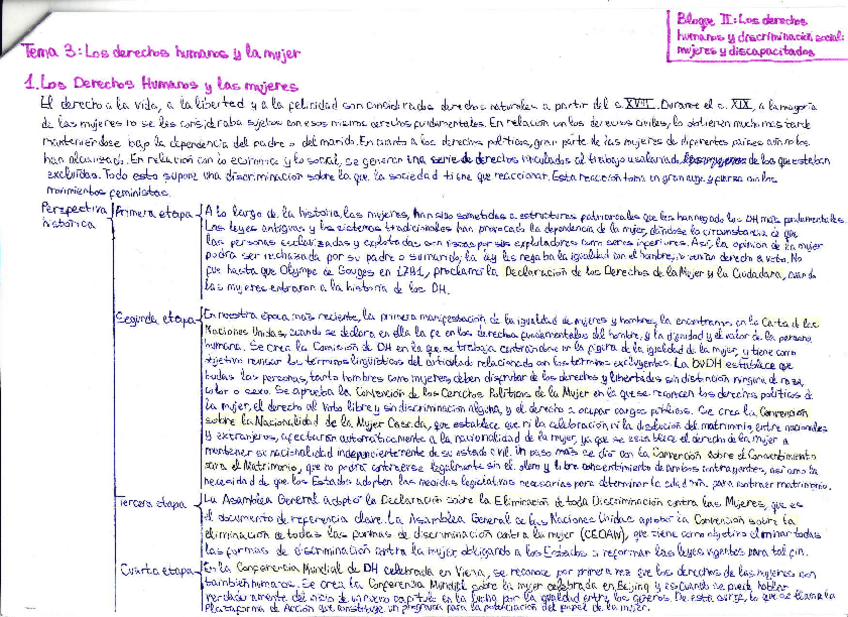 Bloque II: Los derechos
humanos y discriminación social:
mujeres y discapacitados
Tema 3: Los derechos humanos y la mujer
1. Los Derechos Humanos y las mujeres
El derecho a la vida, a la libertad y a la felicidad son considerados derechos naturales a partir del s. XVIII. Durante el s. XIX, a la mayoría
de las mujeres no se les consideraba sujetos con esos mismos derechos fundamentales. En relación con los derechos civiles, lo obtienen mucho más tarde
manteniéndose bajo la dependencia del padre o del marido. En cuanto a los derechos políticos, gran parte de las mujeres de diferentes países aún no los
han alcanzado. En relación con lo económico y lo social, se generan una serie de derechos vinculados al trabajo asalariado, de los que estaban
excluidas. Todo esto supone una discriminación sobre la que la sociedad tiene que reaccionar. Esta reacción toma un gran auge y fuerza con los
movimientos feministas.
Perspectiva
histórica
Primera etapa
A lo largo de la historia, las mujeres, han sido sometidas a estructuras patriarcales que les han negado los DH más fundamentales.
Las leyes antiguas y los sistemas tradicionales han provocado la dependencia de la mujer, dándose la circunstancia de que
las personas esclavizadas y explotadas son vistas por sus explotadores como seres inferiores. Así, la opinión de la mujer
podía ser rechazada por su padre o su marido, la ley les negaba la igualdad con el hombre, o tenían derecho a voto. No
fue hasta que Olympe de Gouges en 1791, proclamó la Declaración de los Derechos de la Mujer y la Ciudadana, cuando
las mujeres entraron a la historia de los DH.
Segunda etapa
En nuestra época más reciente, la primera manifestación de la igualdad de mujeres y hombres, la encontramos en la Carta de las
Naciones Unidas, cuando se declara en ella la fe en los derechos fundamentales del hombre, y la dignidad y el valor de la persona
humana. Se crea la Comisión de DH en la que se trabaja centrándose en la figura de la igualdad de la mujer, y tiene como
objetivo revisar los términos lingüísticos del articulado relacionado con los términos excluyentes. La DUDH establece que
todas las personas, tanto hombres como mujeres, deben disfrutar de los derechos y libertades sin distinción ninguna de raza,
color o sexo. Se aprueba la Convención de los Derechos Políticos de la Mujer en la que se reconocen los derechos políticos de
la mujer, el derecho al voto libre y sin discriminación alguna, y el derecho a ocupar cargos públicos. Se crea la Convención
sobre la Nacionalidad de la Mujer Casada, que establece que ni la celebración ni la disolución del matrimonio, entre nacionales
y extranjeros, afectarán automáticamente a la nacionalidad de la mujer, ya que se establece el derecho de la mujer a
mantener su nacionalidad independientemente de su estado civil. Un paso más se dio con la Convención sobre el Consentimiento
para el Matrimonio, que no podrá contraerse legalmente sin el pleno y libre consentimiento de ambos contrayentes, así como la
necesidad de que los Estados adopten las medidas legislativas necesarias para determinar la edad mín. para contraer matrimonio.
Tercera etapa
La Asamblea General adoptó la Declaración sobre la Eliminación de toda Discriminación contra las Mujeres, que es
el documento de referencia clave. La Asamblea General de las Naciones Unidas aprobó la Convención sobre la
eliminación de todas las formas de discriminación contra la mujer (CEDAW), que tiene como objetivo eliminar todas
las formas de discriminación contra la mujer, obligando a los Estados a reformar las leyes vigentes para tal fin.
Cuarta etapa
En la Conferencia Mundial de DH celebrada en Viena, se reconoce por primera vez que los derechos de las mujeres son
también humanos. Se crea la Conferencia Mundial sobre la mujer celebrada en Beijing y es cuando se puede hablar
verdaderamente del inicio de un nuevo capítulo en la lucha por la igualdad entre los géneros. De esta surge, lo que se llama la
Plataforma de Acción que constituye un programa para la potenciación del papel de la mujer.